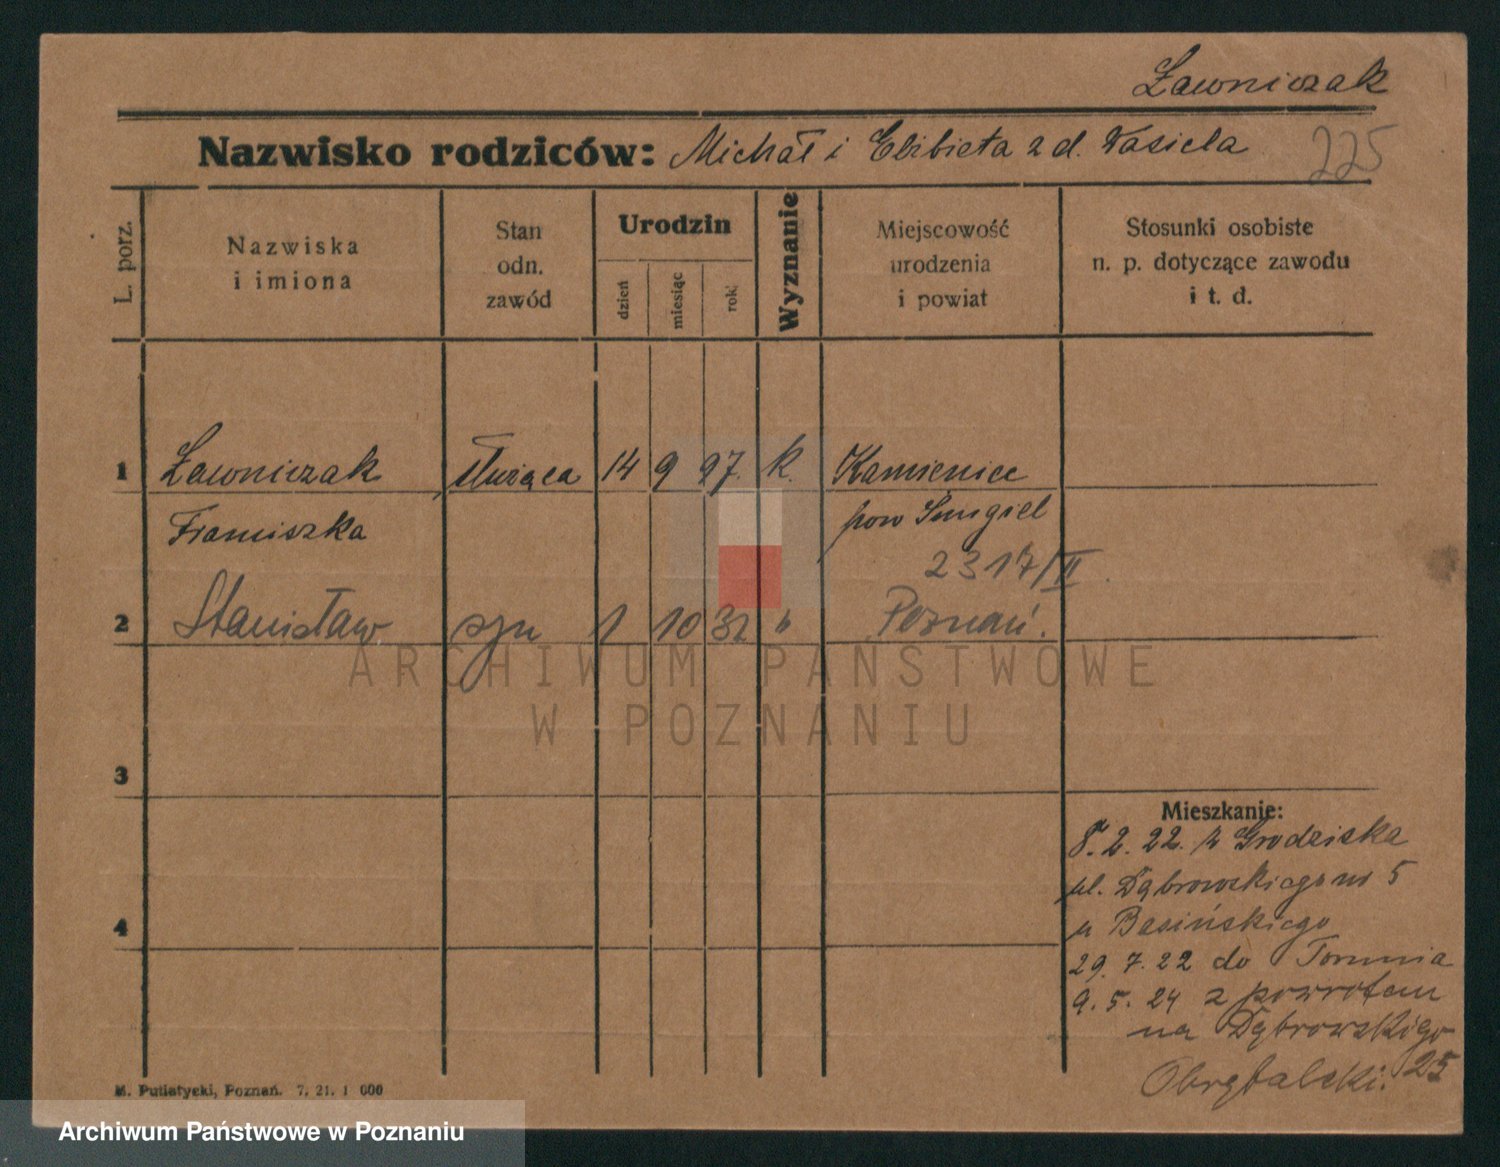 Ławniczak
Nazwisko rodziców: Michał i Elżbieta z d. Wasiela
225
L. porz.
Nazwiska
i imiona
Stan
odn.
zawód
Urodzin
dzień
miesiąc
rok
Wyznanie
Miejscowość
urodzenia
i powiat
Stosunki osobiste
n. p. dotyczące zawodu
i t. d.
1 Ławniczak służąca 14 9 97. k. Kamieniec
Franciszka pow Śmigiel
2317/II
2 Stanisław syn 1 10 32 " Poznań.
ARCHIWUM PAŃSTWOWE
W POZNANIU
3
Mieszkanie:
8. 2. 22. z Grodziska
ul. Dąbrowskiego nr 5
u Basińskiego
4
29. 7. 22 do Torunia
9. 5. 24 z powrotem
na Dąbrowskiego
25
M. Putiatycki, Poznań. 7. 21. 1 000
Archiwum Państwowe w Poznaniu